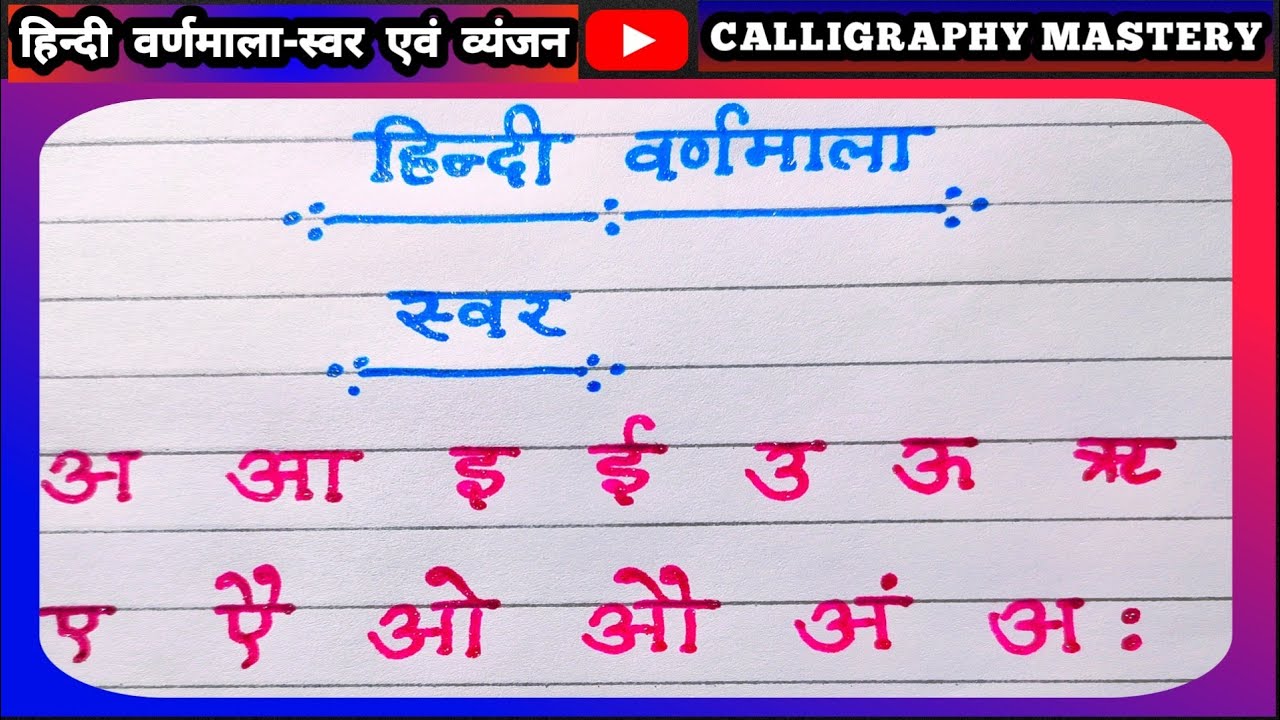 हिन्दी वर्णमाला-स्वर एवं व्यंजन CALLIGRAPHY MASTERY
हिन्दी वर्णमाला
स्वर
अ आ इ ई उ ऊ ऋ
ए एै ओ औ अं अः